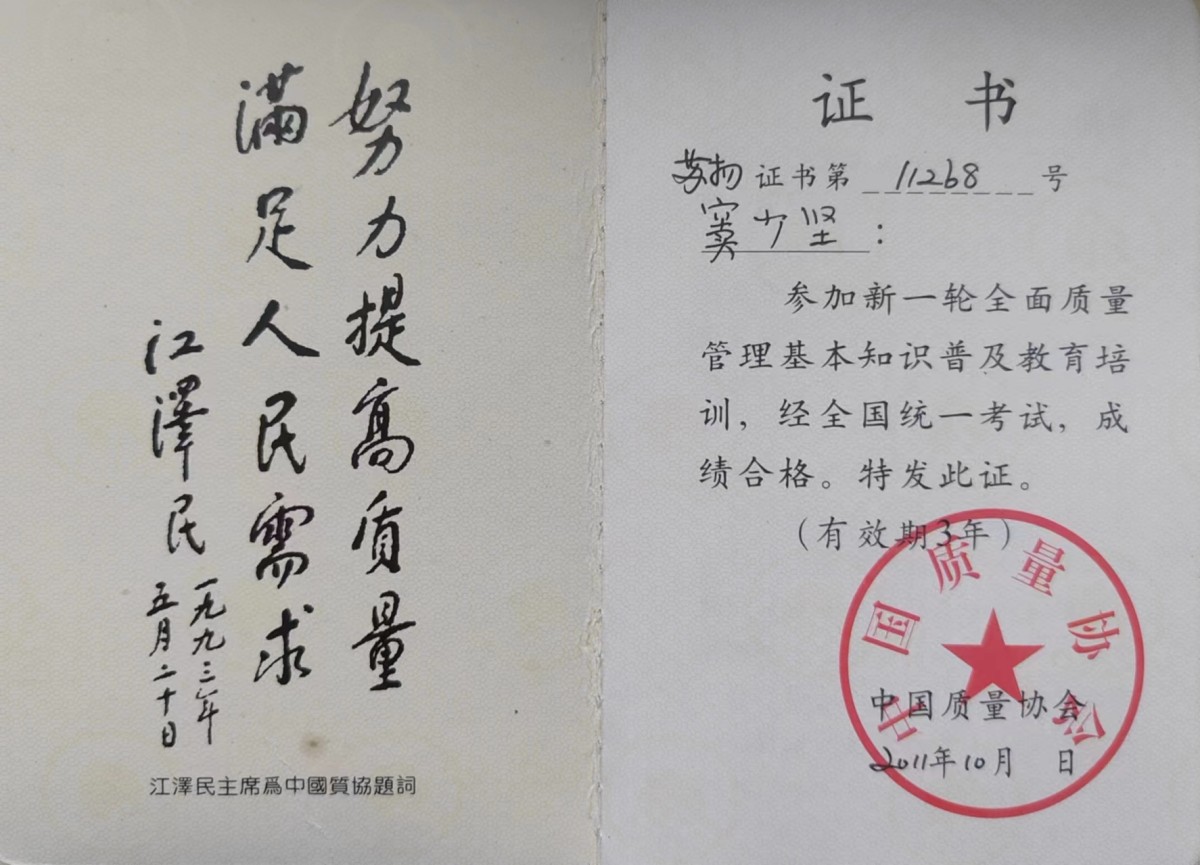 努力提高质量
满足人民需求
江澤民
一九九三年
五月二十日
江澤民主席爲中國質協題詞
证 书
苏物 证书第 11268 号
窦少坚：
参加新一轮全面质量
管理基本知识普及教育培
训，经全国统一考试，成
绩合格。特发此证。
（有效期3年）
中国质量协会
中国质量协会
2011年10月 日